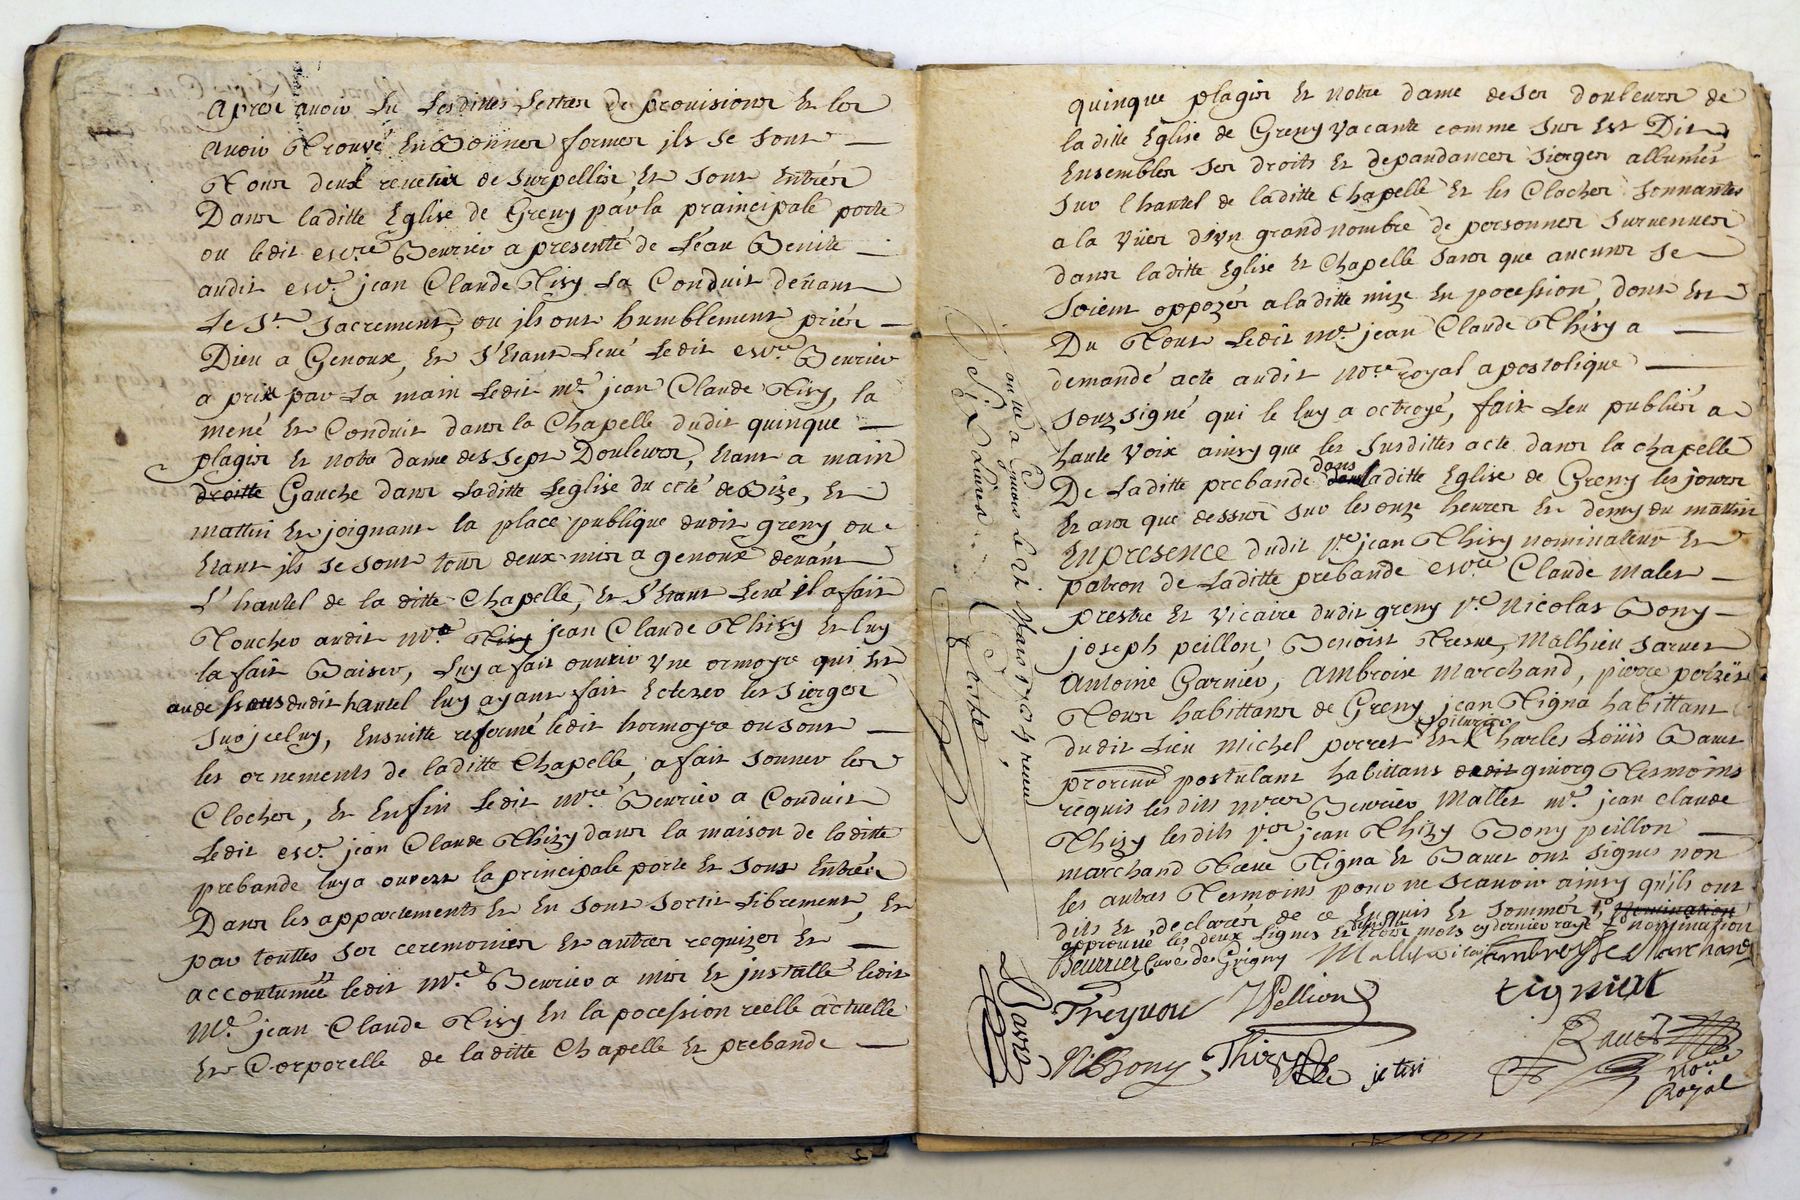 Apres auoir Lu Lesdittes Lettres de prouisions Et les
auoir Trouvé En Bonnes formes ils se sont
Tous deux reuetu de surpellis Et sont Entrés
Dans laditte Eglise de Greny par la prainsipale porte
ou ledit Beurrier a presenté de L'eau Benite
audit jean Claude Tisy La Conduit deuant
Le St. Sacrement, ou ils ont humblement priés
Dieu a Genoux, Et S'Etant Leué Ledit Beurrier
a prix par La main Ledit mr. jean Claude Tisy, la
mené Et Conduit dans la Chapelle dudit quinque
plagis Et notre dame des sept Douleurs, Etant a main
droitte Gauche dans Laditte Leglise du coté de Bize, Et
mattin Et joignant la place publique dudit greny ou
Etant ils se sont tous deux mis a genoux deuant
L'hautel de la ditte Chapelle, Et S'Etant Leué il a fait
Toucher audit mre Tisy jean Claude Thisy Et luy
la fait Baiser, Luy a fait ouurir vne ormoyre qui Est
au de ssous dudit hautel luy ayant fait Eclerer les Sierges
Sur jceluy, Ensuitte refermé ledit hormoyre ou sont
les ornements de laditte Chapelle, a fait sonner les
Cloches, Et Enfin Ledit mre Beurrier a Conduit
Ledit jean Claude Thizy dans la maison de laditte
prebande luy a ouvert la principale porte Et sont Entrés
Dans les appartements Et En sont sortit Librement, Et
par touttes ses ceremonies Et autres requizes Et
accoutumée ledit mre Beurrier a mis Et jnstallé ledit
mr. jean Claude Tisy En la pocession reelle actuelle
Et Corporelle de laditte Chapelle Et prebande
quinque plagis Et notre dame de ses douleurs de
laditte Eglise de Greny vacante comme sus Est Dit
Ensembles ses droits Et depandances Sierges allumés
sur l'hautel de laditte Chapelle Et les Cloches sonnantes
a la vüe d'vn grand nombre de personnes suruenues
dans laditte Eglise Et Chapelle sans que aucuns se
soient oppozés a laditte mize En pocession, dont Est
Du Tout Ledit mr. jean Claude Thisy a
demandé acte audit nore royal apostolique
souzsigné qui le luy a octroyé, fait Leu publiés a
haute voix ainsy que les susdittes acte dans la chapelle
De Laditte prebande dans laditte Eglise de Greny les jours
Et ans que dessus sur les onze heures Et demy du mattin
En presence dudit sr. jean Thisy nominateur Et
patron de Laditte prebande Claude males
prestre Et vicaire dudit greny sr. Nicolas Bony
joseph peillon, Benoist Mathieu
Antoine Garnier, Ambroise Marchand, pierre
Tous habittans de Greny jean Tigna habittant
voiturier
dudit Lieu michel perret Et Charles Loüis Bauet
postulant habittans dudit giuors Tesmoins
requis les dits mres Beurrier Malles mr. jean claude
Thizy lesdits srs jean Thizy Bony peillon
marchand Tigna Et Bauet ont signés non
les autres Tesmoins pour ne scauoir ainsy qu'ils ont
dits Et declarés de ce Enquis Et sommés nomination
approuue les deux Lignes Et trois mots cy dernier rayé nomination
Beurrier Curé de Grigny Ambroise Marchand
Treynou Pellion tigniat
N Bony Thizy Bauet
nore
Royal